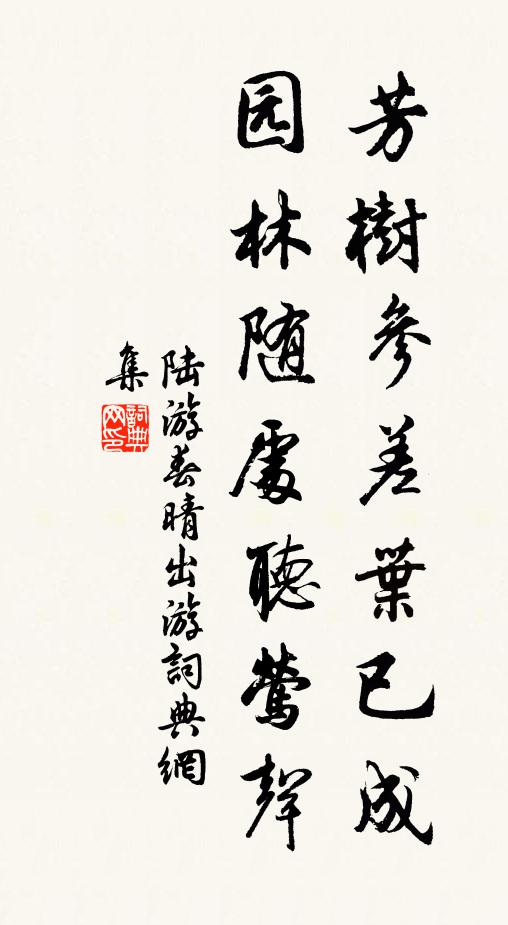 芳樹參差葉已成
园林随處聽鶯聲
陆游春晴出游詞典網
集
詞典网印